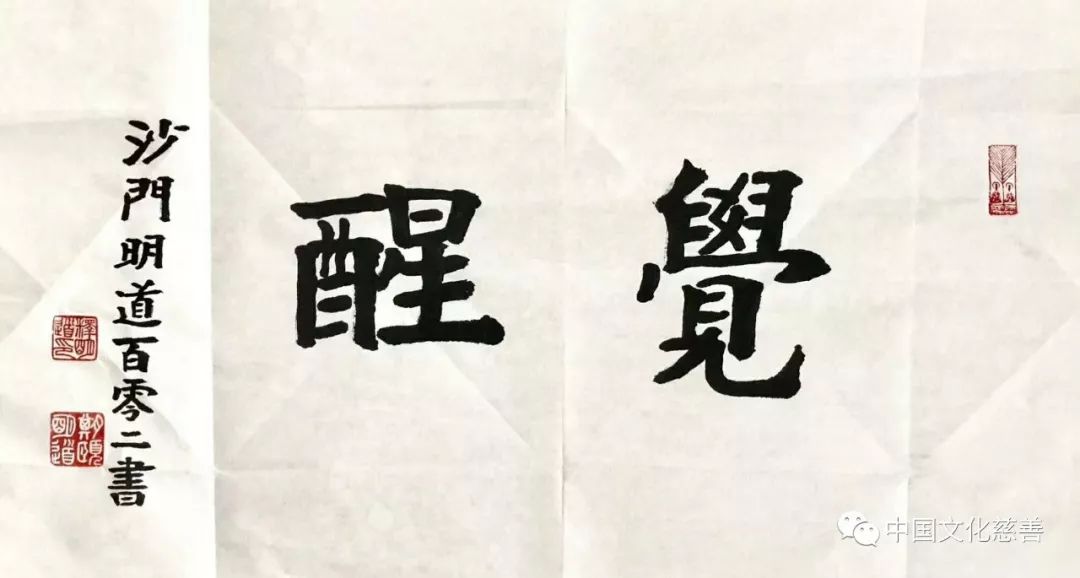 覺醒
沙門明道百零二書
中国文化慈善